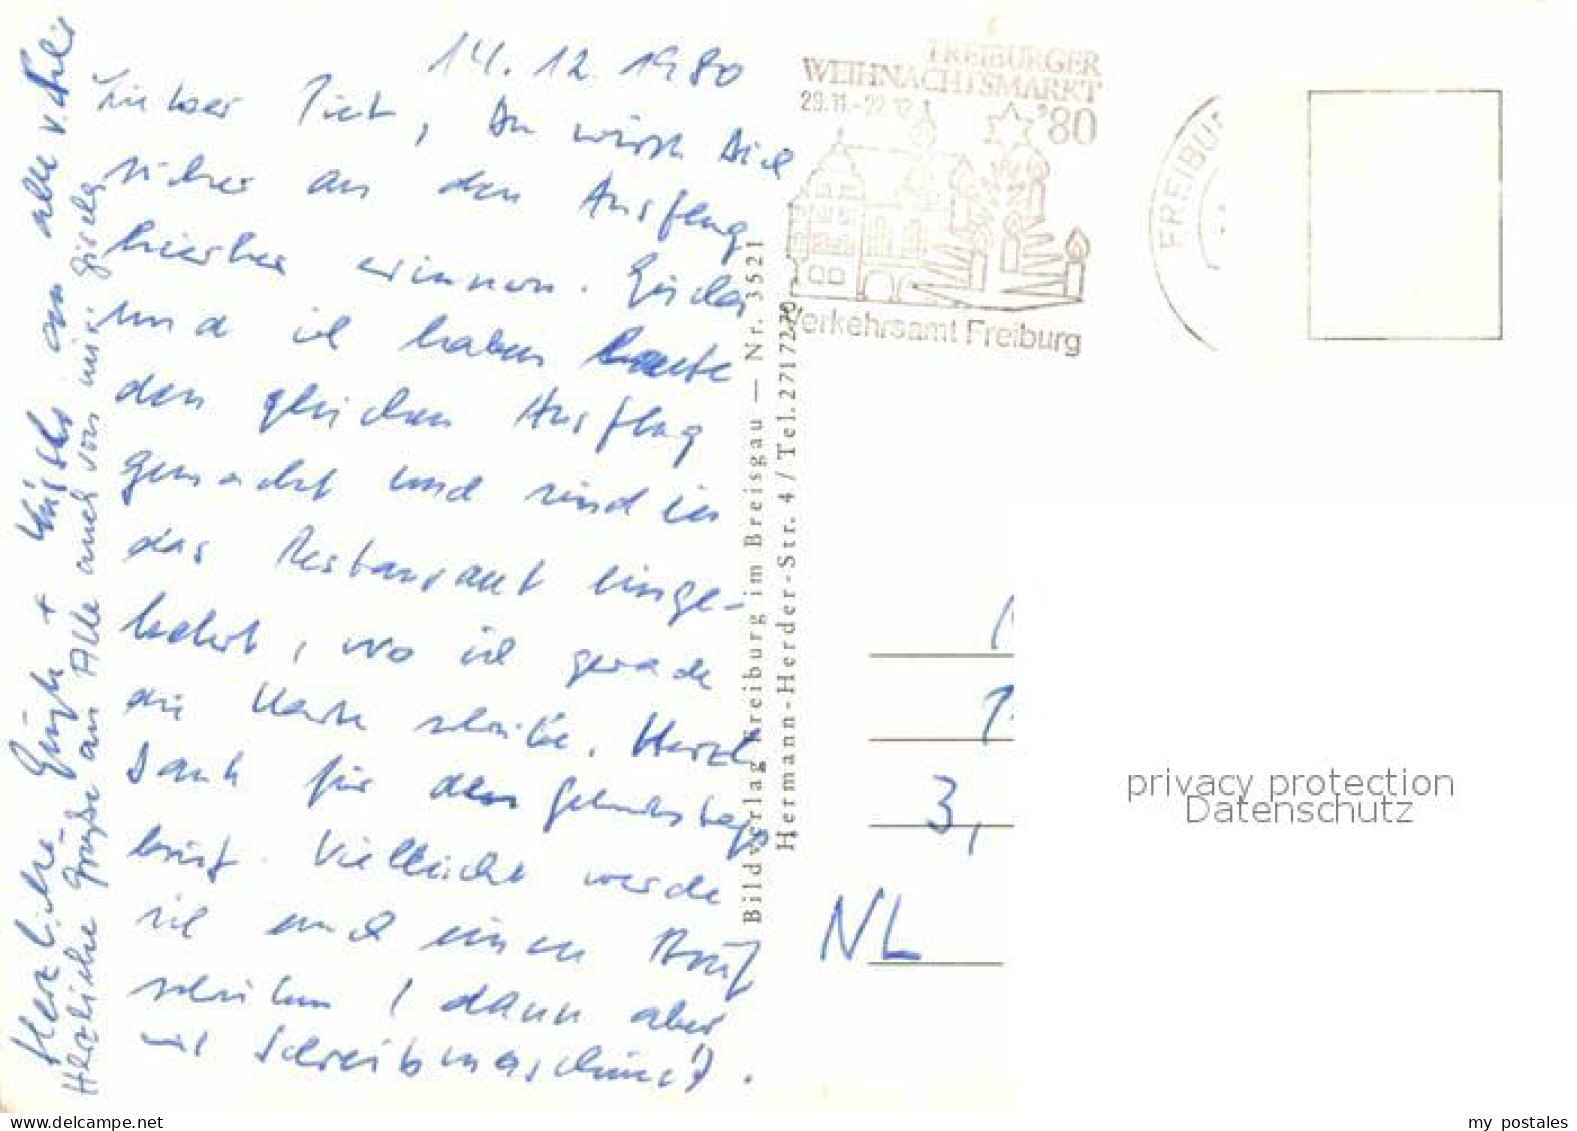 14.12.1980
Lieber Piet, Du wirst Dich
sicher an den Ausflug
hierher erinnern. Gisela
und ich haben heute
den gleichen Ausflug
gemacht und sind in
das Restaurant einge-
kehrt, wo ich gerade
die Karte schreibe. Herzl.
Dank für den Geburtstags
brief. Vielleicht werde
ich auch einen Brief
schreiben (dann aber
mit Schreibmaschine!).
Herzliche Grüße + Küsse an alle v.
Herzliche Grüße an Alle auch von mir. Gisela
FREIBURGER
WEIHNACHTSMARKT
29.11.-22.12. '80
Verkehrsamt Freiburg
FREIBUR
Bildverlag Freiburg im Breisgau — Nr. 3521
Hermann-Herder-Str. 4 / Tel. 2717270
3,
NL
privacy protection
Datenschutz
www.delcampe.net
my_postales